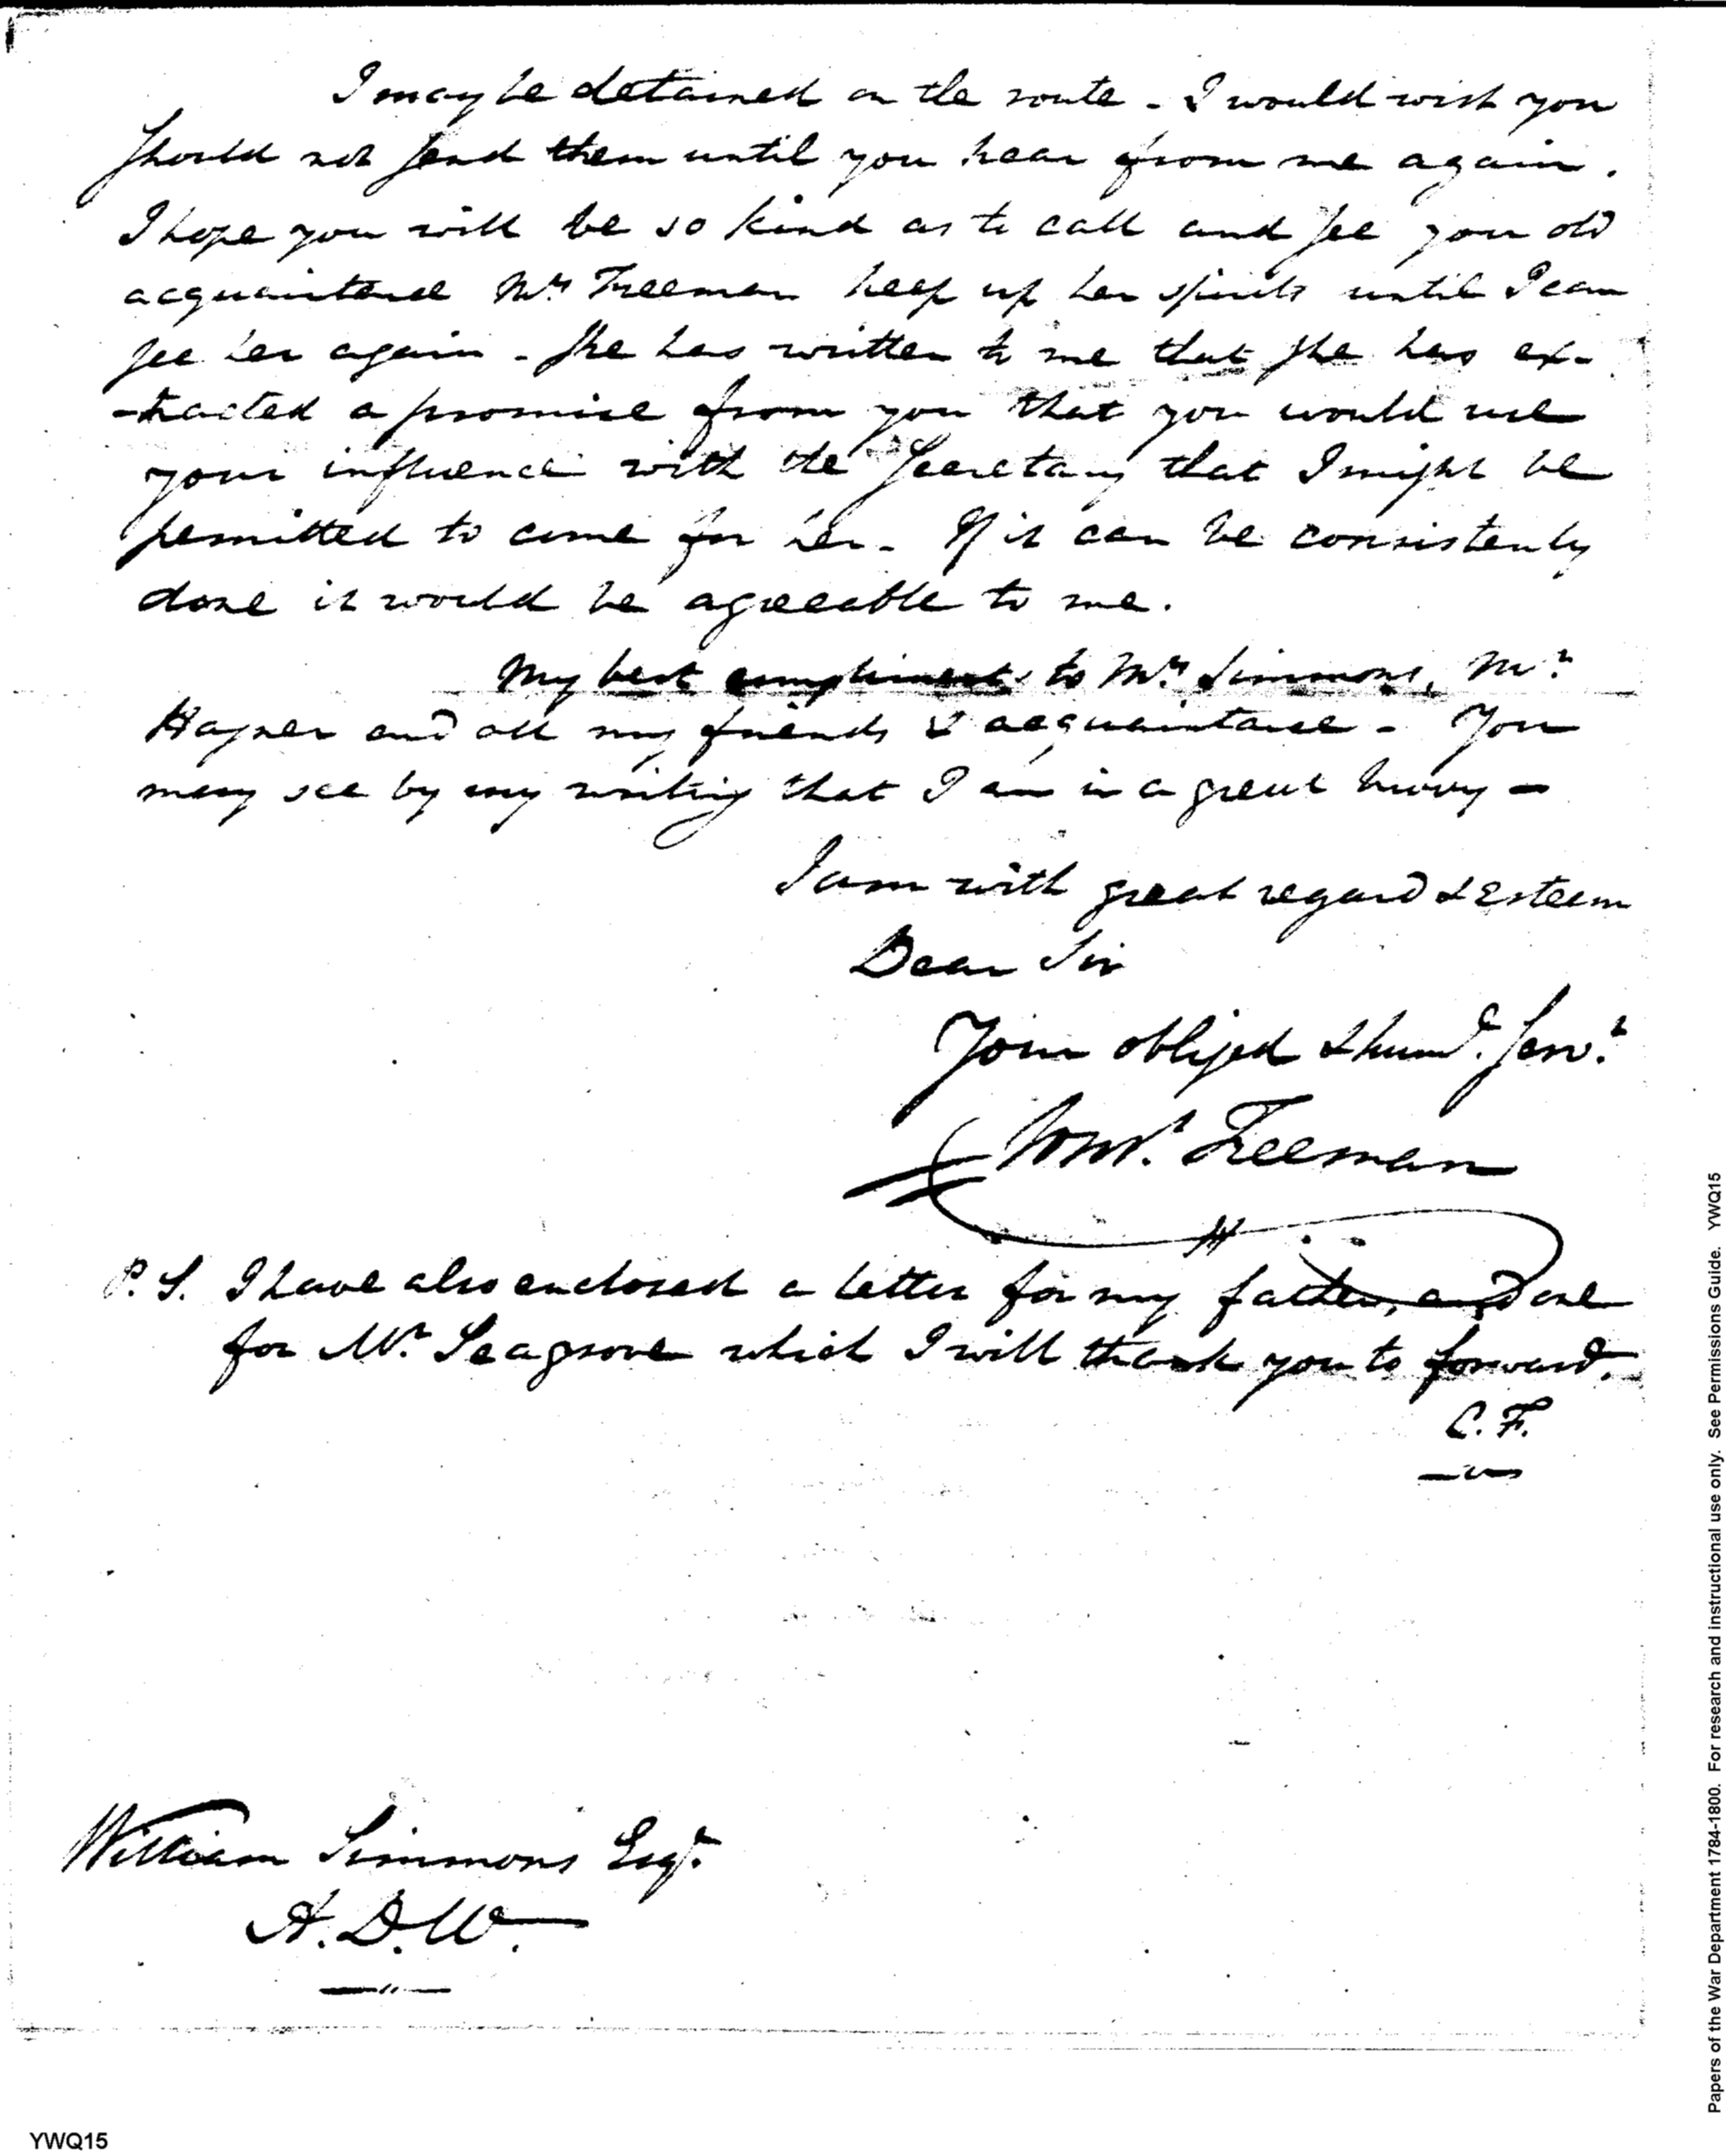 I may be detained on the route - I would wish you
should not send them until you hear from me again.
I hope you will be so kind as to call and see your old
acquaintance Mrs Freeman keep up her spirits until I can
see her again - she has written to me that she has ex-
-tracted a promise from you that you would use
your influence with the Secretary that I might be
permitted to come for her - If it can be consistently
done it would be agreeable to me.
My best compliments to Mrs Simmons, Mr.
Hagner and all my friends & acquaintance - You
may see by my writing that I am in a great hurry -
I am with great regard & Esteem
Dear Sir
Your obliged & humle. Servt.
Freeman
P.S. I have also enclosed a letter for my father, and one
for Mr. Seagrove which I will thank you to forward.
C. F.
William Simmons Esqr.
A. D. W.
YWQ15
Papers of the War Department 1784-1800. For research and instructional use only. See Permissions Guide. YWQ15